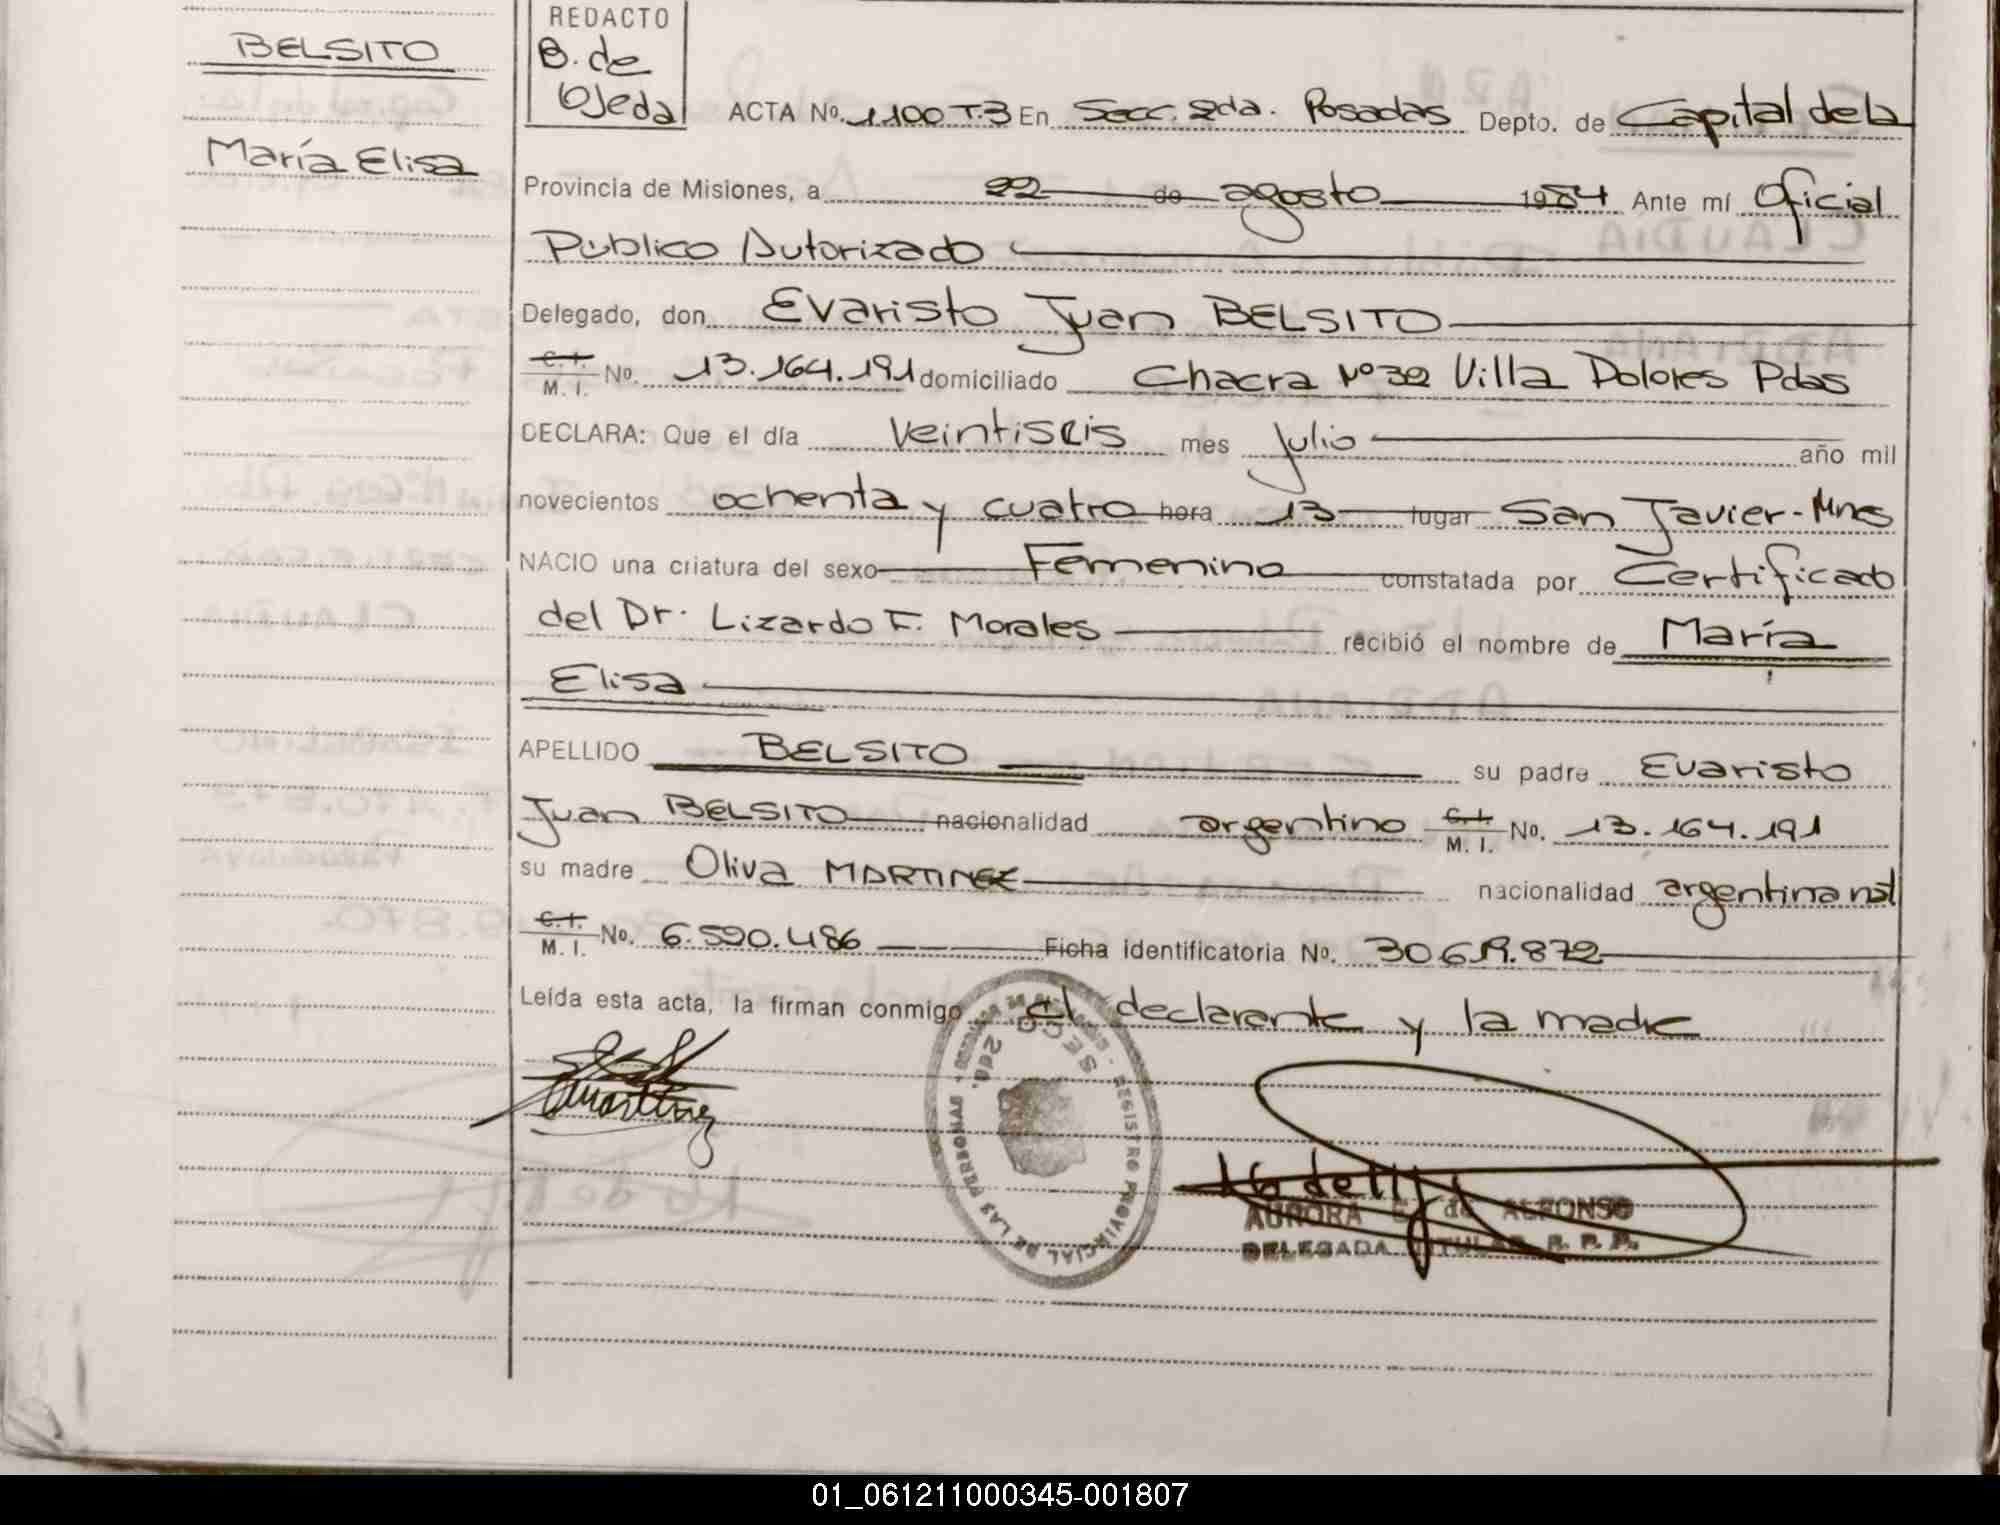 BELSITO
María Elisa
REDACTO
B. de
Ojeda
ACTA No. 1100 T.3 En Secc. 2da. Posadas Depto. de Capital de la
Provincia de Misiones, a 22 de agosto 1984 Ante mí Oficial
Público Autorizado
Delegado, don Evaristo Juan BELSITO
C. I. M. I. No. 13.164.191 domiciliado Chacra Nº 32 Villa Dolores Pdas
DECLARA: Que el día Veintiseis mes Julio año mil
novecientos ochenta y cuatro hora 13 lugar San Javier - Mnes
NACIO una criatura del sexo Femenino constatada por Certificado
del Dr. Lizardo F. Morales recibió el nombre de María
Elisa
APELLIDO BELSITO su padre Evaristo
Juan BELSITO nacionalidad argentino C. I. M. I. No. 13.164.191
su madre Oliva MARTINEZ nacionalidad argentina nat
C. I. M. I. No. 6.590.486 Ficha identificatoria No. 30.619.872
Leída esta acta, la firman conmigo el declarante y la madre
SECC. 2da.
REGISTRO PROVINCIAL DE LAS PERSONAS
AURORA G. de ALFONSO
DELEGADA TITULAR R. P. P.
01_061211000345-001807